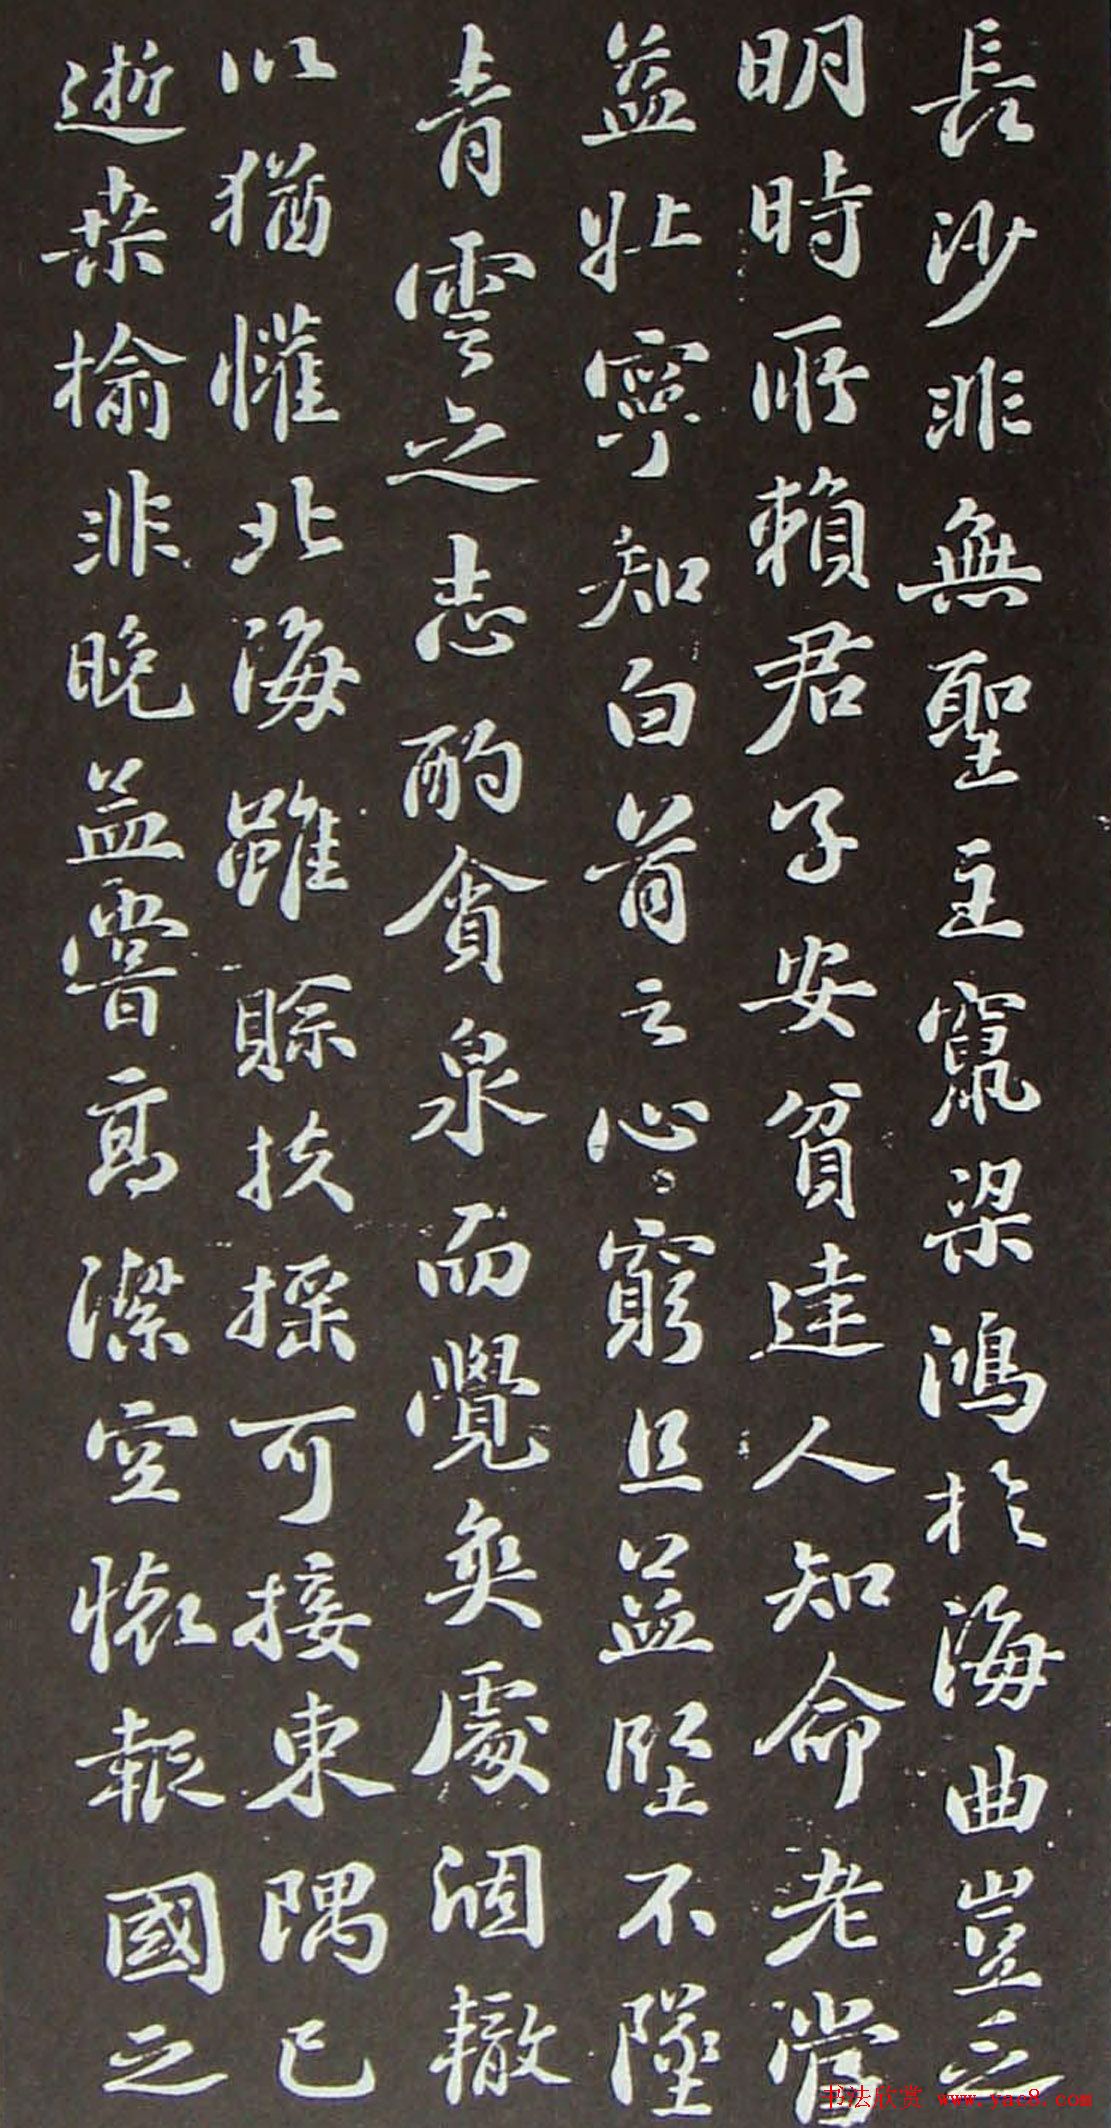 長沙非無聖主竄梁鴻於海曲豈乏
明時所賴君子安貧達人知命老當
益壯寧知白首之心窮且益堅不墜
青雲之志酌貪泉而覺爽處涸轍
以猶懽北海雖賒扶搖可接東隅已
逝桑榆非晚益嘗高潔空懷報國之
书法欣赏 www.yac8.com